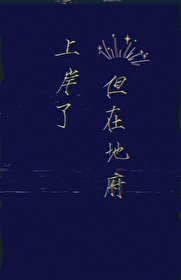 上岸了
但在地府